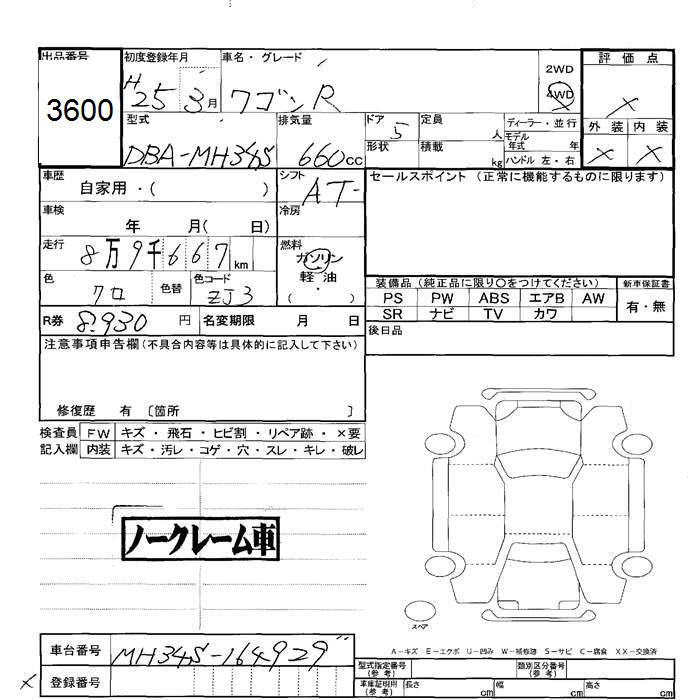 出品番号
3600
初度登録年月
H 25 3月
車名・グレード
ワゴンR
2WD
4WD
評価点
×
外装 内装
× ×
型式
DBA-MH34S
排気量
660cc
ドア
5
定員
人
ディーラー・並行
モデル年式 年
形状
積載
kg
ハンドル 左・右
車歴
自家用・( )
シフト
AT
セールスポイント (正常に機能するものに限ります)
車検
年 月( 日)
冷房
走行
8万9千667km
燃料
ガソリン
軽油
・
( )
色
クロ
色替
色コード
ZJ3
装備品(純正品に限り○をつけてください)
新車保証書
PS PW ABS エアB AW
有・無
SR ナビ TV カワ
R券
8.930円
名変期限 月 日
後日品
注意事項申告欄(不具合内容等は具体的に記入して下さい)
修復歴 有 〔箇所 〕
検査員 FW キズ・飛石・ヒビ割・リペア跡・×要
記入欄 内装 キズ・汚レ・コゲ・穴・スレ・キレ・破レ
ノークレーム車
スペア
A-キズ E-エクボ U-凹み W-補修跡 S-サビ C-腐食 XX-交換済
車台番号
MH34S-164929
× 登録番号
型式指定番号(参考)
類別区分番号(参考)
車庫証明用(参考)
長さ cm
幅 cm
高さ cm